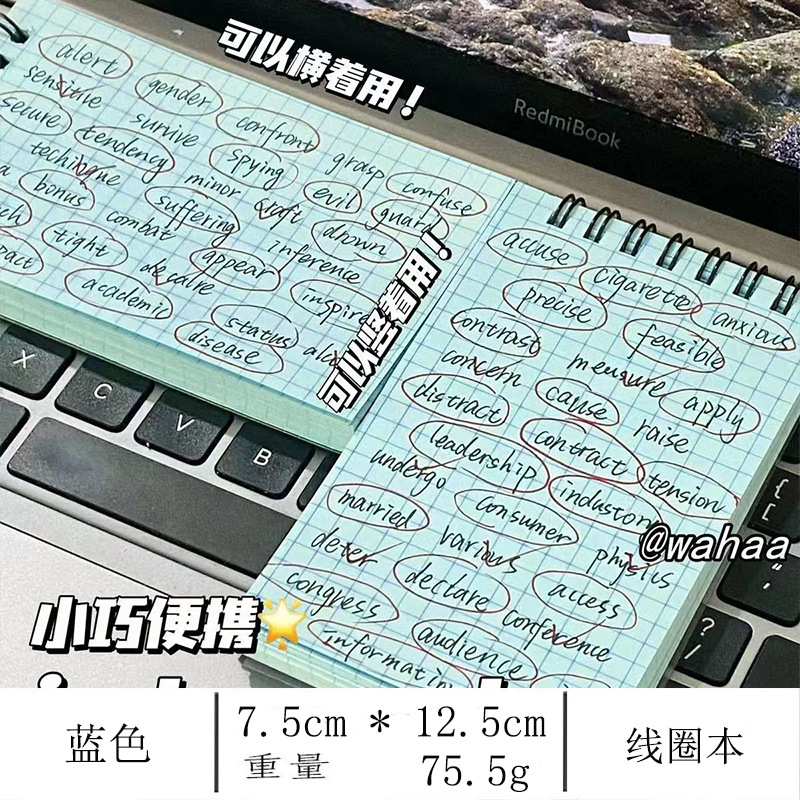 可以横着用！
RedmiBook
alert
gender
confront
grasp
confuse
sensitive
survive
spying
evil
guard
secure
tendency
minor
craft
drown
technique
suffering
inference
bonus
combat
appear
inspire
tight
decalre
status
academic
disease
可以竖着用！
accuse
cigarette
anxious
precise
feasible
contrast
measure
apply
concern
cause
raise
distract
contract
tension
leadership
industory
undergo
consumer
physics
married
various
access
deter
declare
conference
congress
audience
information
@wahaa
小巧便携
X
C
V
B
{
[
"
'
?
/
蓝色
7.5cm * 12.5cm
重量 75.5g
线圈本